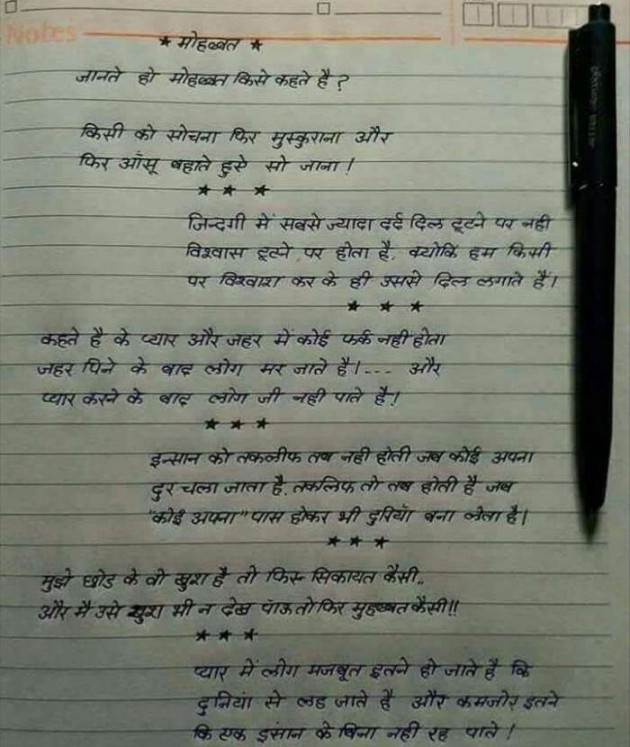 Notes
★ मोहब्बत ★
जानते हो मोहब्बत किसे कहते है?
किसी को सोचना फिर मुस्कुराना और
फिर आँसू बहाते हुसे सो जाना!
★ ★ ★
जिन्दगी में सबसे ज्यादा दर्द दिल टूटने पर नही
विश्वास टूटने पर होता है. क्योकिं हम किसी
पर विश्वाश कर के ही उससे दिल लगाते हैं।
★ ★ ★
कहते है के प्यार और जहर में कोई फर्क नही होता
जहर पिने के बाद लोग मर जाते है।--- और
प्यार करने के बाद लोग जी नही पाते है!
★ ★ ★
इन्सान को तकलीफ तब नही होती जब कोई अपना
दुर चला जाता है. तकलिफ तो तब होती है जब
"कोई अपना" पास होकर भी दुरियाँ बना लेता है।
★ ★ ★
मुझे छोड के वो खुश है तो फिर सिकायत कैसी..
और मै उसे खुश भी न देख पाऊ तो फिर मुहब्बत कैसी!!
★ ★ ★
प्यार में लोग मजबूत इतने हो जाते है कि
दुनियां से लड जाते है और कमजोर इतने
कि एक इंसान के बिना नही रह पाते!